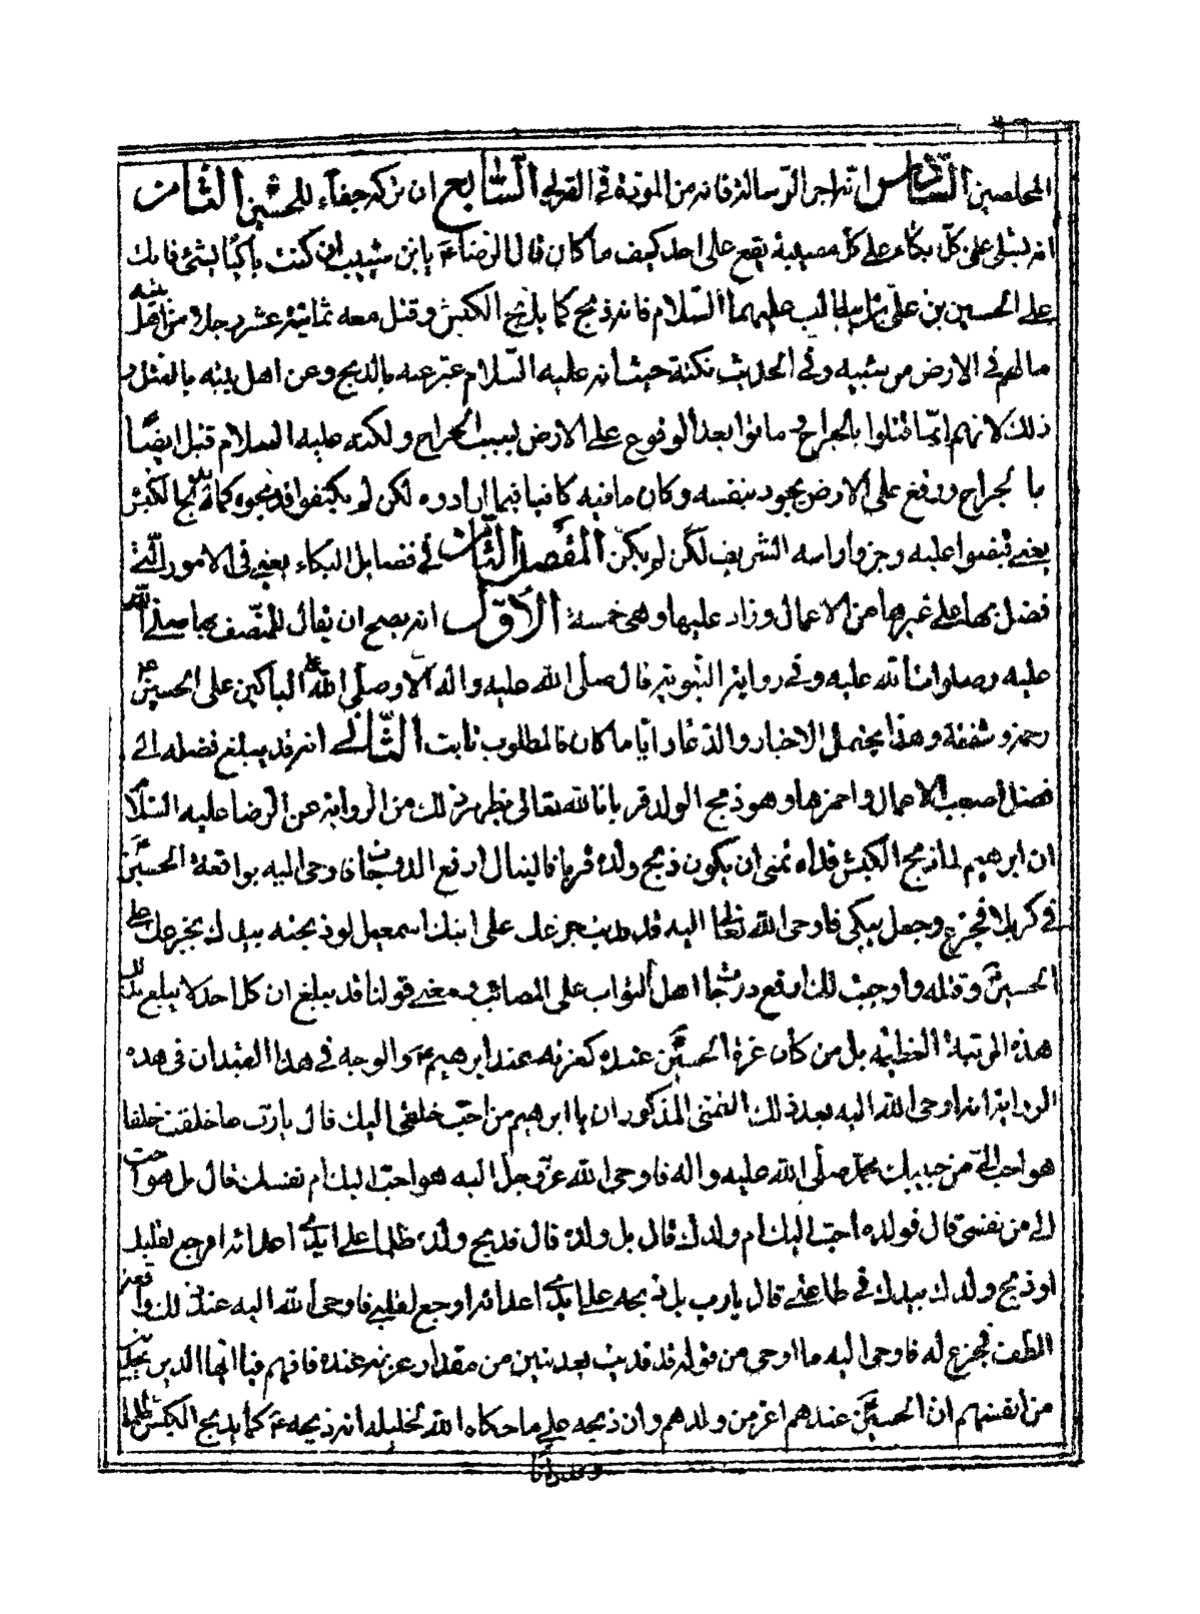 المخلصين السادس انه اجر الرسالة فانه من المودة في القربى السابع ان تركه جفاء للحسين الثامن
انه يتسلى على كل بكاء على كل مصيبة يقع على احد كيف ما كان قال الرضاء ع يابن شبيب ان كنت باكيا لشئ فابك
على الحسين بن علي بن ابيطالب عليهما السلام فانه ذبح كما يذبح الكبش وقتل معه ثمانية عشر رجلا من اهل بيته
مالهم في الارض من شبيه وفي الحديث نكتة حيث انه عليه السلام عبر عنه بالذبح وعن اهل بيته بالقتل و
ذلك لانهم انما قتلوا بالجراح و ماتوا بعد الوقوع على الارض بسبب الجراح ولكنه عليه السلام قتل ايضا
بالجراح ووقع على الارض يجود بنفسه وكان ما فيه كافيا فيما ارادوه لكن لم يكتفوا فذبحوه كما يذبح الكبش
يعني قبضوا عليه وجزوا راسه الشريف لكن لم يكن المقصد الثالث في فضايل البكاء يعني في الامور التي
فضل بها على غيرها من الاعمال وزاد عليها وهي خمسة الاول انه يصح ان يقال للمتصف بها صلى الله
عليه وصلوات الله عليه وفي رواية النبوية قال صلى الله عليه واله الا وصلى الله على الباكين على الحسين ع
رحمة وشفقة وهذا يحتمل الاخبار والدعاء وايا ما كان فالمطلوب ثابت الثاني انه قد يبلغ فضله الى
فضل اصعب الاعمال واحمزها وهو ذبح الولد قربانا لله تعالى يظهر ذلك من الرواية عن الرضا عليه السلام
ان ابرهيم لما ذبح الكبش فداه تمنى ان يكون ذبح ولده قربانا لينال ارفع الدرجات فاوحى اليه بواقعة الحسين ع
في كربلا فجزع وجعل يبكي فاوحى الله تعالى اليه قد فديت جزعك على ابنك اسمعيل لو ذبحته بيدك بجزعك على
الحسين ع وقتله واوجبت لك ارفع درجات اهل الثواب على المصائب ومعنى قولنا قد يبلغ ان كل احد لا يبلغ بذلك
هذه المرتبة العظيمة بل من كان عزة الحسين ع عنده كعزته عند ابرهيم ع والوجه في هذا القيد ان في هذه
الرواية انه اوحى الله اليه بعد ذلك التمني المذكور ان يا ابرهيم من احب خلقي اليك قال يا رب ما خلقت خلقا
هو احب الي من حبيبك محمد صلى الله عليه واله فاوحى الله عز وجل اليه هو احب اليك ام نفسك قال بل هو احب
الي من نفسي قال فولده احب اليك ام ولدك قال بل ولده قال فذبح ولده ظلما على ايدي اعدائه اوجع لقلبك
او ذبح ولدك بيدك في طاعتي قال يا رب بل ذبحه على ايدي اعدائه اوجع لقلبي فاوحى الله اليه عند ذلك واقعة
الطف فجزع له فاوحى اليه ما اوحى من قوله قد فديت بعد تبين من مقدار عزته عنده فافهم فيا ايها الذين
من انفسهم ان الحسين ع عندهم اعز من ولدهم وان ذبحه على ما حكاه الله لخليله انه ذبحه ع كما يذبح الكبش